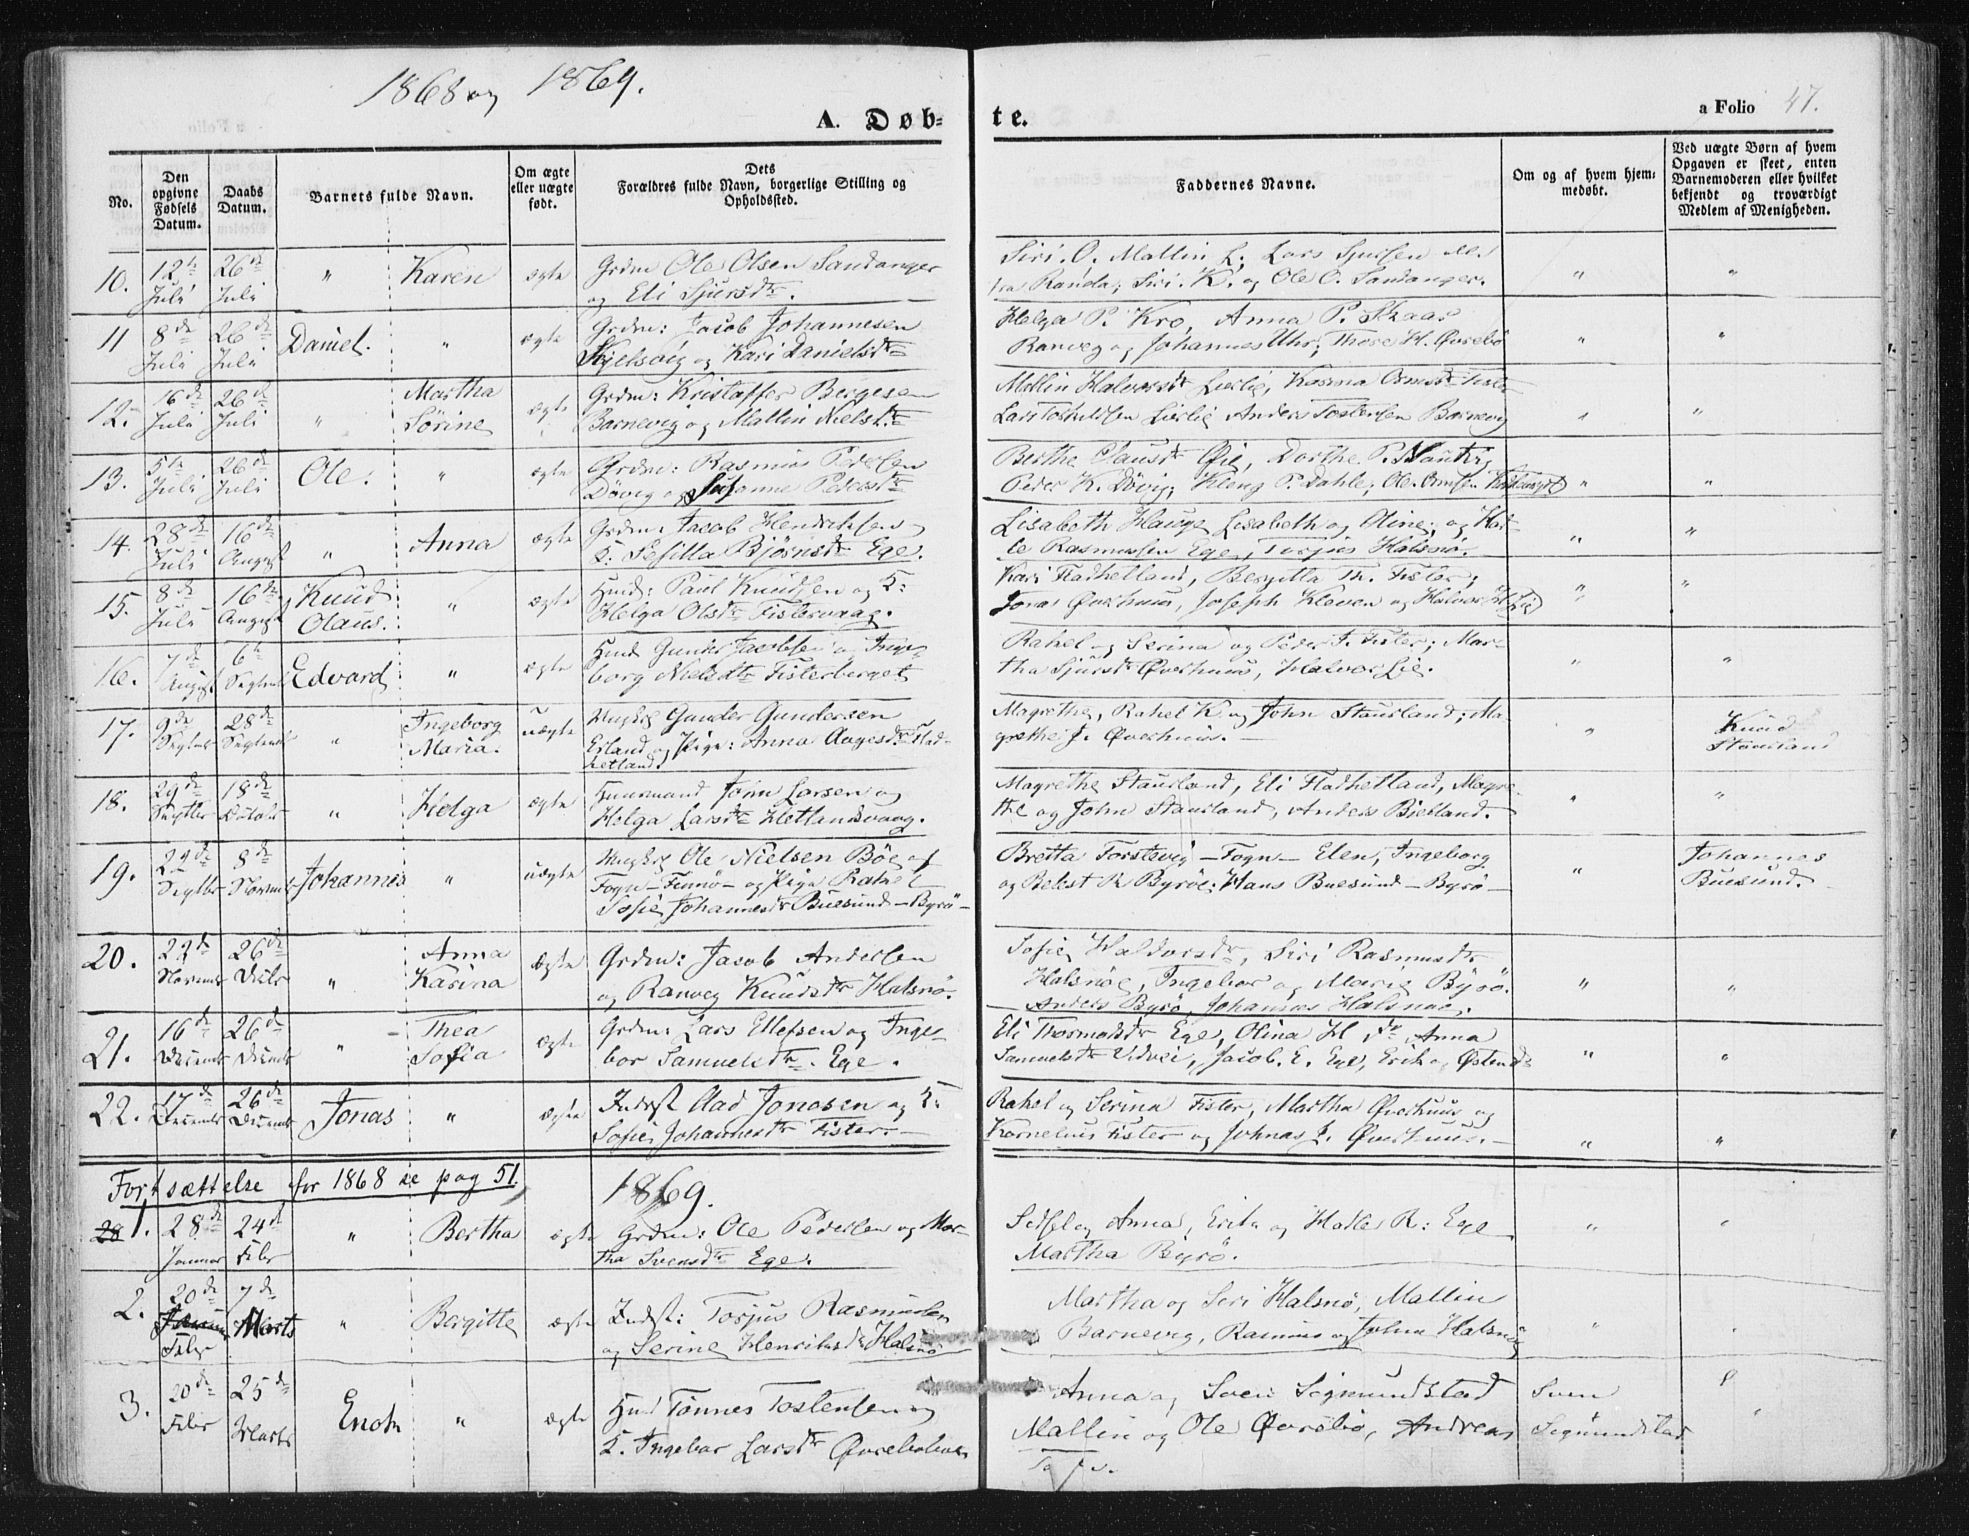 1868 og 1869.
A. Døb-
te.
a Folio 47.
No.
Den opgivne Fødsels Datum.
Daabs Datum.
Barnets fulde Navn.
Om ægte eller uægte født.
Dets Forældres fulde Navn, borgerlige Stilling og Opholdssted.
Faddernes Navne.
Om og af hvem hjem-
medøbt.
Ved uægte Børn af hvem
Opgaven er skeet, enten
Barnemoderen eller hvilket
bekjendt og troværdigt
Medlem af Menigheden.
10. 12te Juli 26de Juli " Karen ægte
Grdm Ole Olsen Sandanger
og Eli Sjursdtr.
Siri. O. Mallin L. Lars
fra Randa; Siri. K. og Ole O. Sandanger. " "
11 8de Juli 26de Juli Daniel. " ægte
Grdm: Jacob Johannesen
og Kari Danielsdtr
Helga P. Kro, Anna P. Skaar
Ranveg og Johannes Uhr; Thore H. Øvrebø " "
12. 16de Juli 26de Juli " Martha Sørine ægte
Grdm: Kristaffer Bergesen
Barnevig og Mallin Nielsdtr
Mallin Halvorsdtr Lierlie, Kosma Ormsdtr
Lars Lierlie Anders Tostensen Barnevig " "
13. 5te Juli 26de Juli Ole. " ægte
Grdm: Rasmus Pedersen
Døvig og Susanne Pedersdtr
Berthe Clausdtr Øie, Dorthe P.
Peder K. Døvig; Kleng P. Dahle; Ole Ormsen " "
14. 28de Juli 16de August " Anna ægte
Grdm: Jacob Hendriksen
K: Sesilla Bjørnsdtr Ege.
Lisabeth Hauge Lisabeth og Oline, og Hal-
le Rasmussen Ege, Torjus Halsnø. " "
15. 8de Juli 16de August Knud Olaus. " ægte
Husd: Paul Knudsen og K:
Helga Olsdtr Fistervaag.
Kari Fladhetland, Bergitta Th. Fister;
Jonas Øverhuus, Joseph Kleven og Halvor H Lie " "
16. 7de August 6te Septemb Edvard " ægte
Husd Gunder Jacobsen og Inge-
borg Nielsdtr Fisterberget
Rahel og Serina og Peder J. Fister; Mar-
tha Sjursdtr Øverhuus, Halvor Lie. " "
17. 9de Septemb 28de Septemb " Ingeborg Maria. uægte
Ungkrl Gunder Gundersen
Erland og Pige: Anna Aagesdtr Flad-
hetland
Magrethe, Rahel K og John Stausland; Ma
grethe J. Øverhuus. — " Knud Stausland
18. 29de Septbr 18de Octobr " Helga ægte
Huusmand John Larsen og
Helga Larsdtr Hetlandsvaag.
Magrethe Stausland, Eli Fladhetland, Magre-
the og John Stausland, Anders Bietland. " "
19. 22de Septbr 8de Novemb Johannes " uægte
Ungkrl Ole Nielsen Bøe af
Fogn – Finnø – og Pige Rahel
Sofie Johannesdtr Buesund – Byrø –
Bretta Forstevig – Fogn – Elen, Ingeborg
og Belest R Byrøe; Hans Buesund – Byrø – " Johannes Buesund.
20. 22de Novemb 26de Decbr " Anna Karina ægte
Grdm: Jacob Andersen
og Ranveg Knudsdtr Halsnø.
Sofie Haldorsdtr, Siri Rasmusdtr
Halsnøe, Ingebor og Marie Byrø.
Anders Byrø, Johannes Halsnøe. " "
21. 16de Decemb 26de Decemb " Thea Sofia ægte
Grdm: Lars Ellefsen og Inge-
bor Samuelsdtr. Ege.
Eli Thormodsdtr Ege, Olina H do Anna
Samuelsdtr, Jacob. E. Ege, Erik og Østend " "
22. 17de Decemb 26de Decemb Jonas " ægte
Inderst Aad Jonasen og K:
Sofie Johannesdtr Fister.
Rahel og Serina Fister, Martha Øverhuus og
Kornelius Fister og Johnas J. Øverhuus. " "
Fortsættelse for 1868 se pag 51
1869.
1. 28de Januar 24de Febr " Bertha ægte
Grdm: Ole Pedersen og Mar-
tha Svensdtr Ege.
og Anna, Erik og Halle R: Ege
Martha Byrø. " "
2. 20de Febr 7de Marts " Bergitte ægte
Indst: Torjus Rasmusen
og Serine Henriksdtr Halsnø
Martha og Seri Halsnø, Mallin
Barnevig, Rasmus og John Halsnøe " "
3. 20de Febr 25de Marts Enok " ægte
Husd Tønnes Tostensen og
K. Ingebor Larsdtr
Anna og Sven Sigmundstad
Mallin og Ole Øvrebø, Andreas
Sven Sigmundstad "